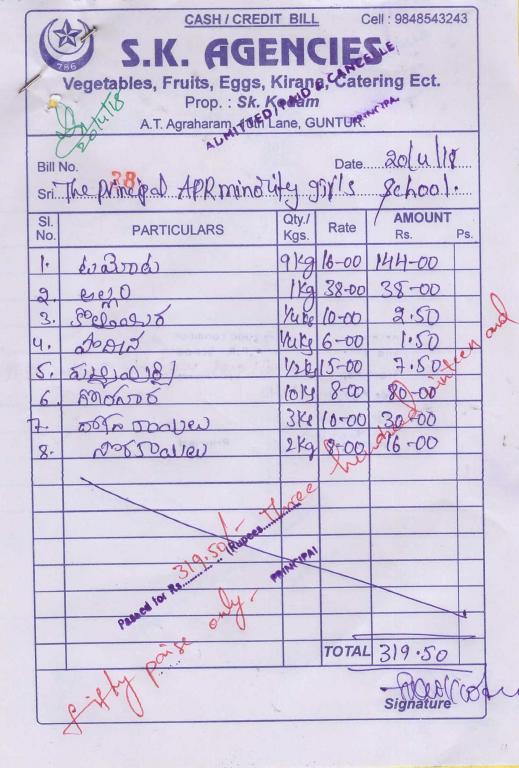 CASH / CREDIT BILL
Cell : 9848543243
786
S.K. AGENCIES
Vegetables, Fruits, Eggs, Kirana, Catering Ect.
Prop. : Sk. Karam
A.T. Agraharam, 10th Lane, GUNTUR.
ADMITTED, PAID & CANCELLE
PRINCIPA.
20/4/18
Bill No. 38
Date 20/4/18
Sri The principal APR minority girls school.
Sl. No. PARTICULARS Qty./ Kgs. Rate AMOUNT Rs. Ps.
1. టమోటా 9kg 16-00 144-00
2. అల్లం 1kg 38-00 38-00
3. 1/4kg 10-00 2.50
4. పొదీన 1/4kg 6-00 1.50
5. 1/2kg 15-00 7.50
6. 10kg 8-00 80-00
7. దోస కాయలు 3kg 10-00 30-00
8. 2kg 8-00 16-00
Passed for Rs. 319.50/- (Rupees Three hundred ninteen and
fifty paise only -
PRINCIPAL
TOTAL 319.50
Signature